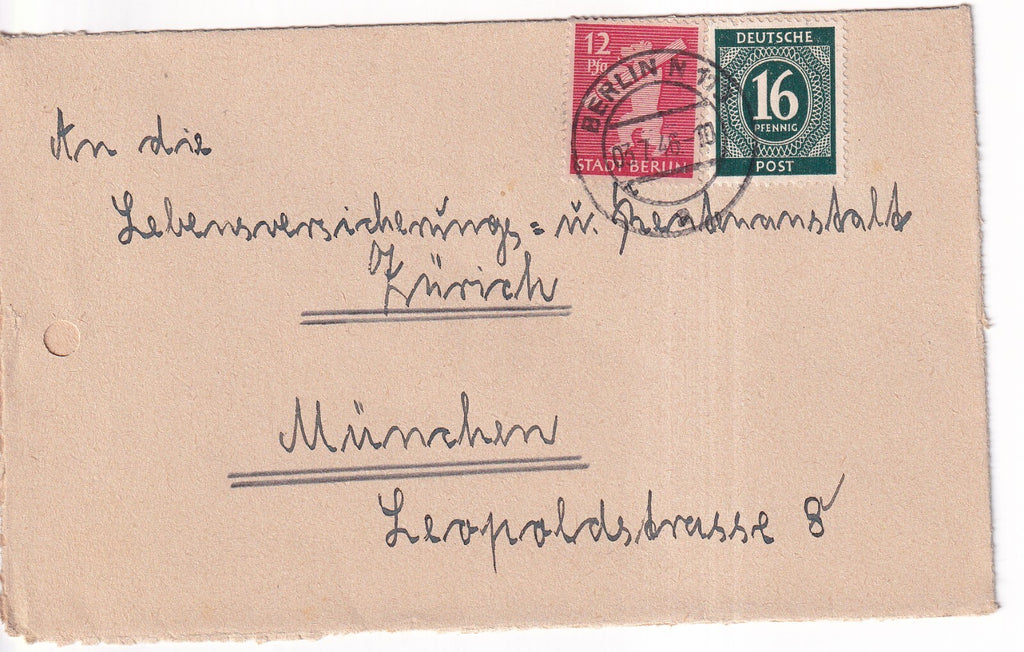 12
Pfg
STADT BERLIN
DEUTSCHE
16
PFENNIG
POST
BERLIN N
03.7.46-10
An die
Lebensversicherungs= u. Rentenanstalt
Zürich
München
Leopoldstrasse 8